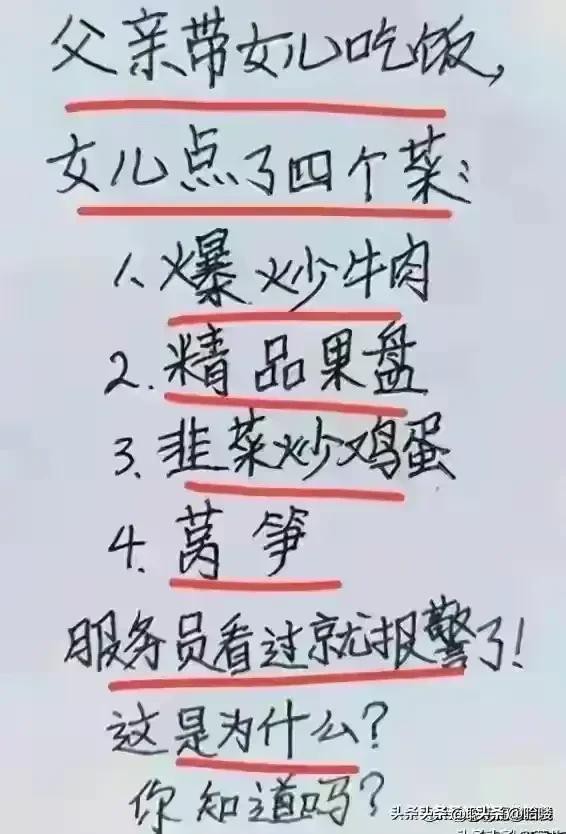 父亲带女儿吃饭，
女儿点了四个菜：
1.爆炒牛肉
2.精品果盘
3.韭菜炒鸡蛋
4.莴笋
服务员看过就报警了！
这是为什么？
你知道吗？